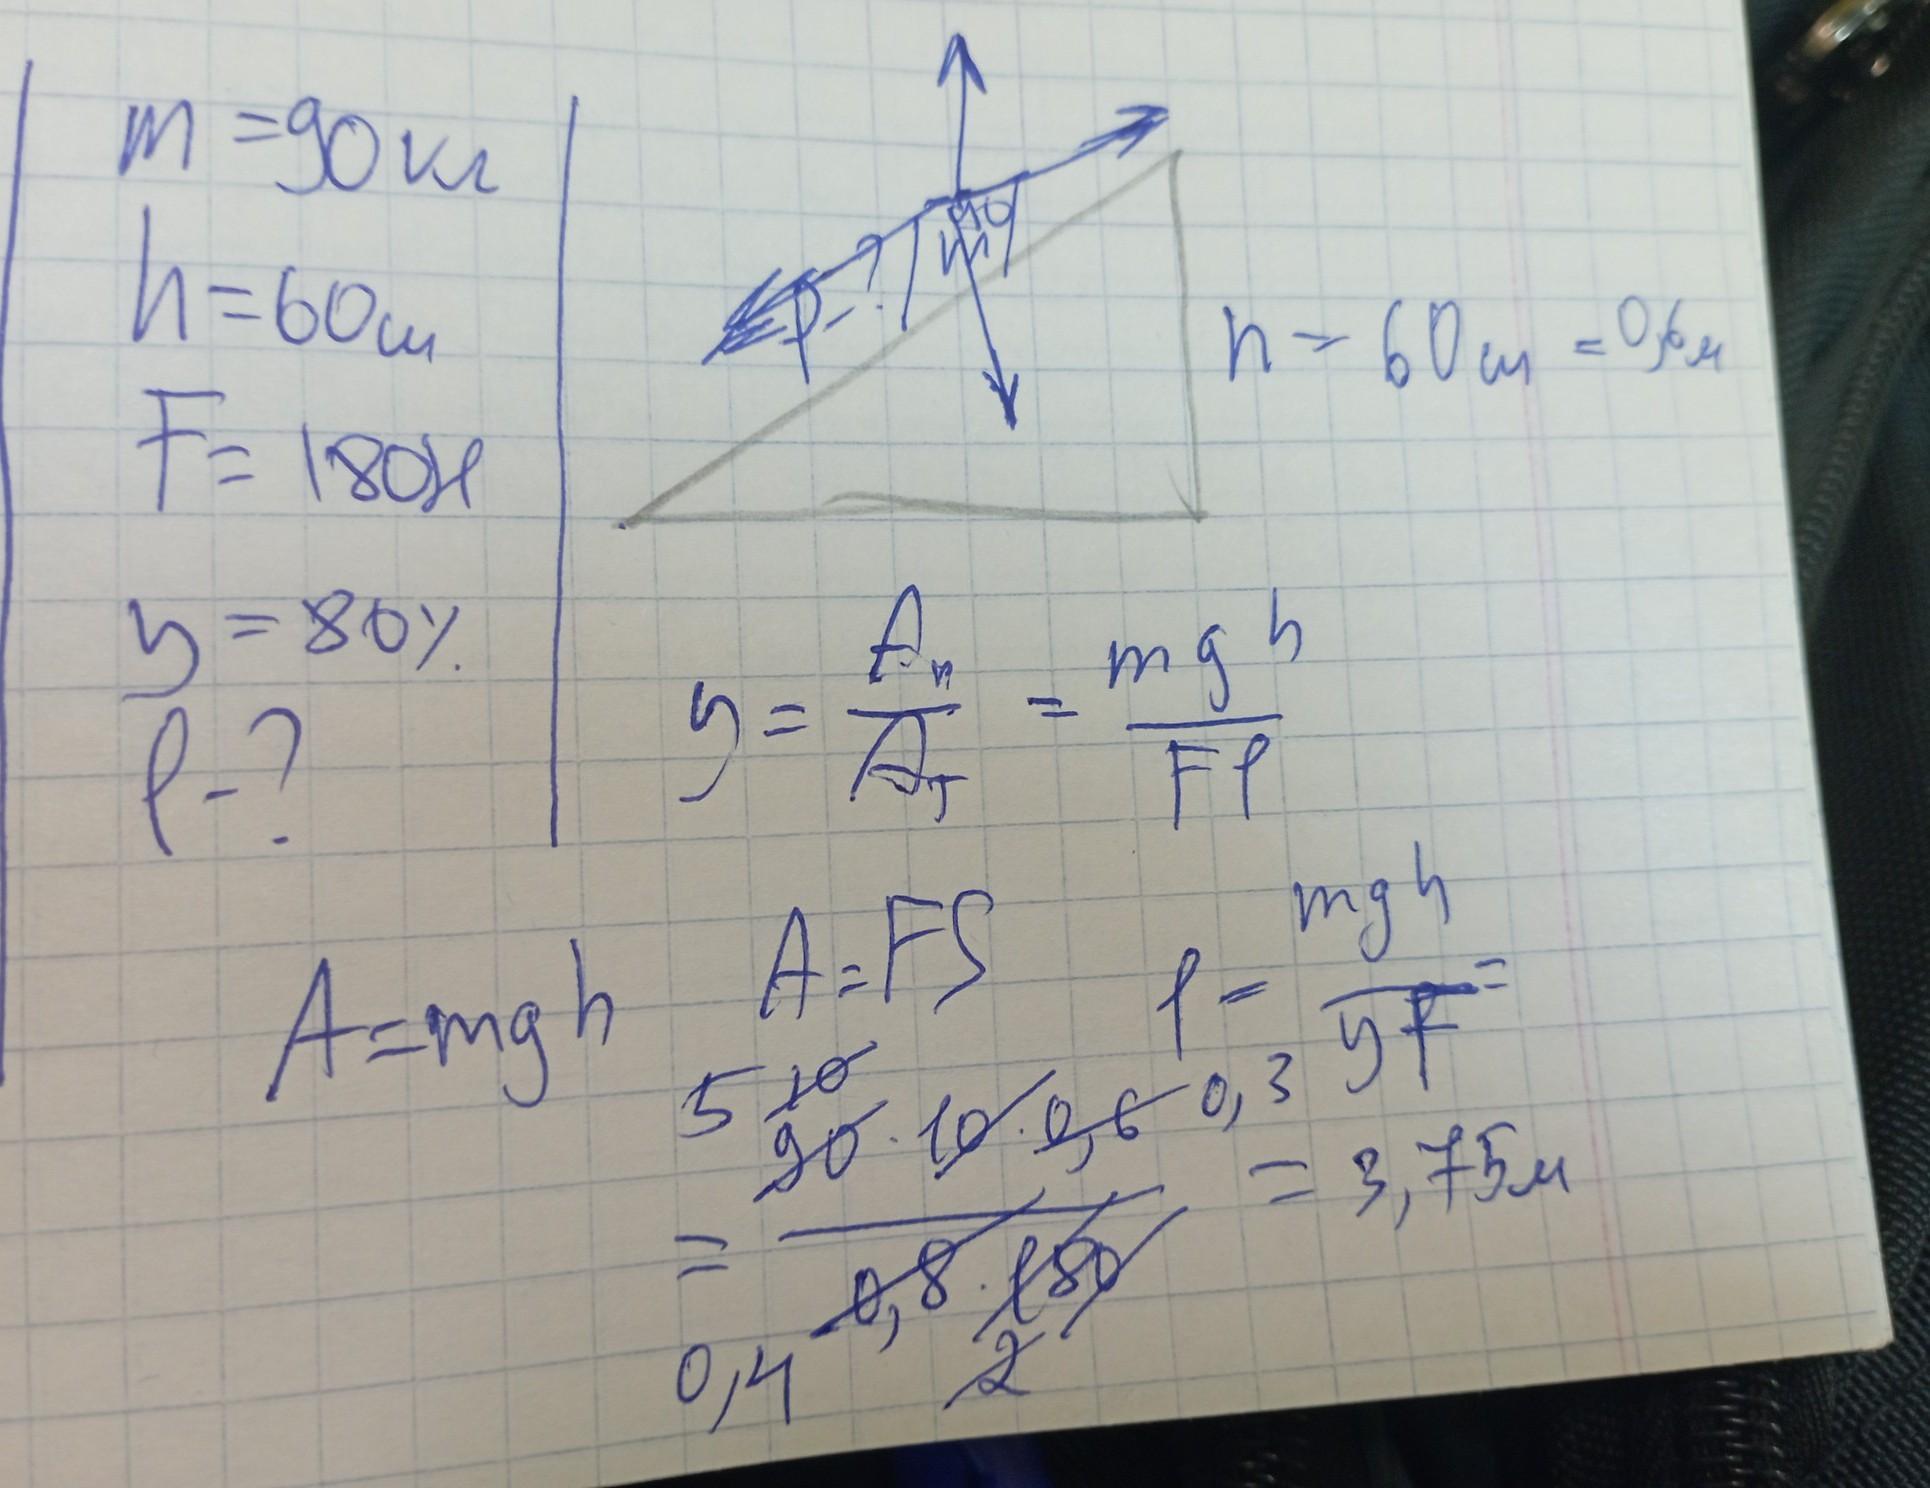 m = 90 кг
h = 60 см
F = 180 Н
η = 80%
l - ?
90
m
l - ?
h = 60 см = 0,6 м
η = Aп / Aз = mgh / Fl
A = mgh
A = FS
l = mgh / ηF =
5 10
= 90 · 10 · 0,6 0,3 / 0,8 · 180 = 3,75 м
0,4 2